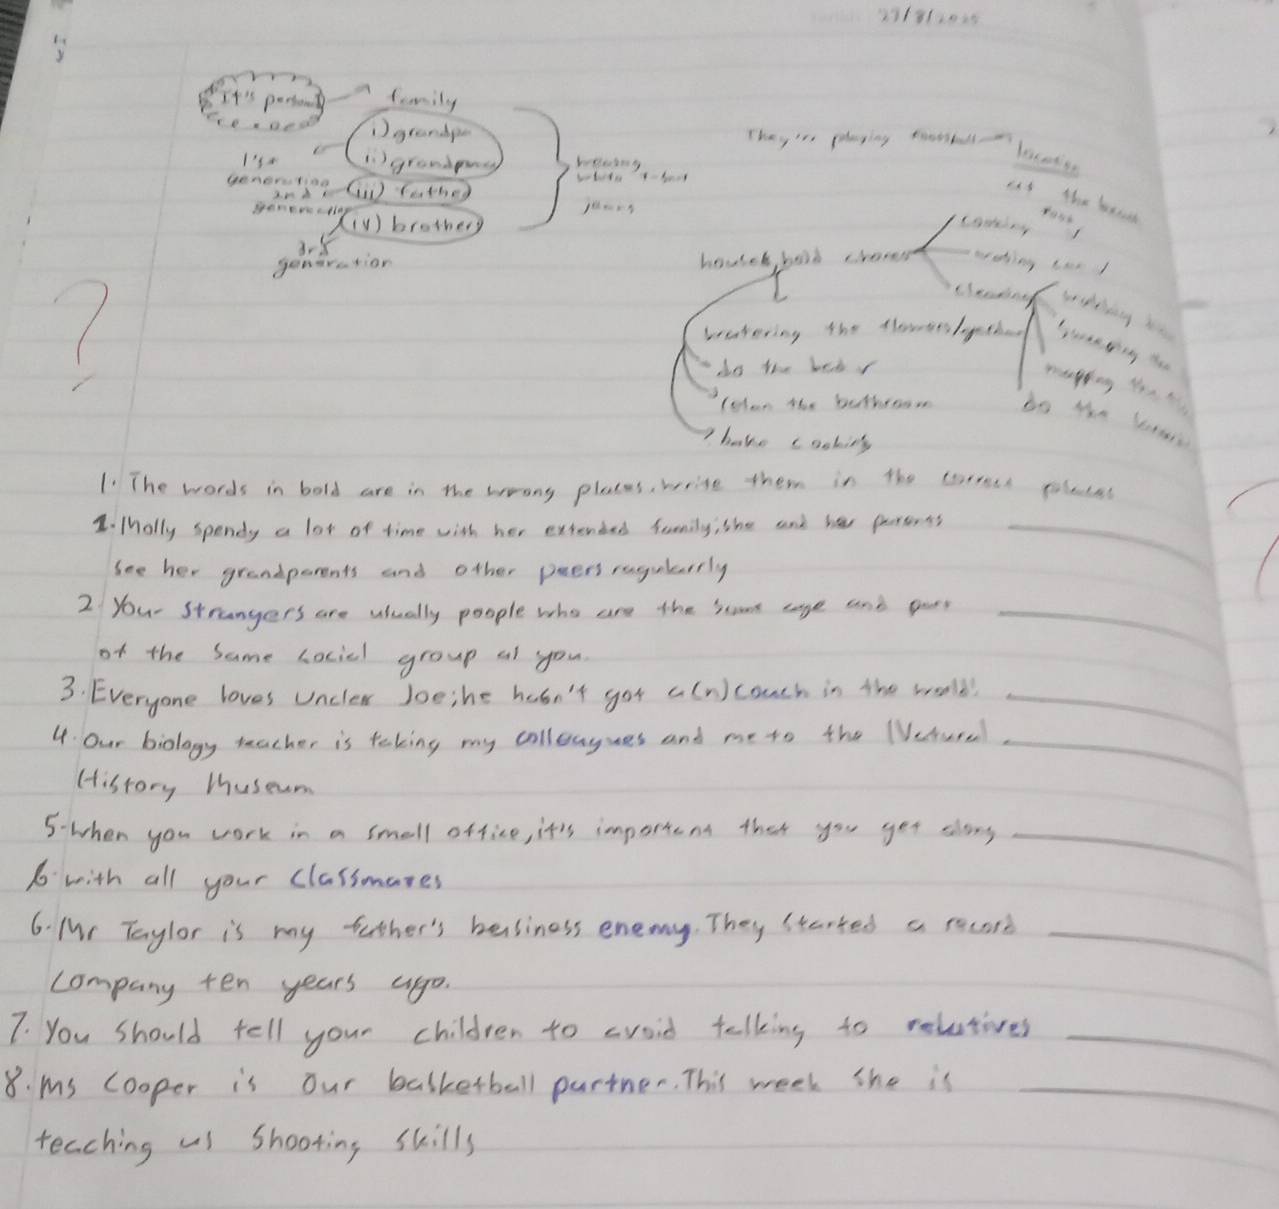 27/8/2025
It's
family
i) grandpa
ii) grandpma
iii) father
iv) brother
1'st
generation
2nd
generation
3rd
generation
wearing
white t-shirt
jeans
They're playing football
location
at the beach
household chores
cooking
cleaning
watering the flowers/
do the bed
clean the bathroom
bake cooking
mopping the
do the
1. The words in bold are in the wrong places. write them in the correct places
1. Molly spendy a lot of time with her extended family; she and her parents
see her grandparents and other peers regularrly
2 Your strangers are usually poople who are the same age and part
of the same social group as you.
3. Everyone loves Uncler Joe; he hasn't got a(n) couch in the world!
4. Our biology teacher is taking my colleagues and me to the Natural
History Museum
5. When you work in a small office, it's important that you get along
6. with all your classmates
6. Mr Taylor is my father's business enemy. They started a record
company ten years ago.
7. You should tell your children to avoid talking to relatives
8. Ms Cooper is our basketball partner. This week she is
teaching us shooting skills